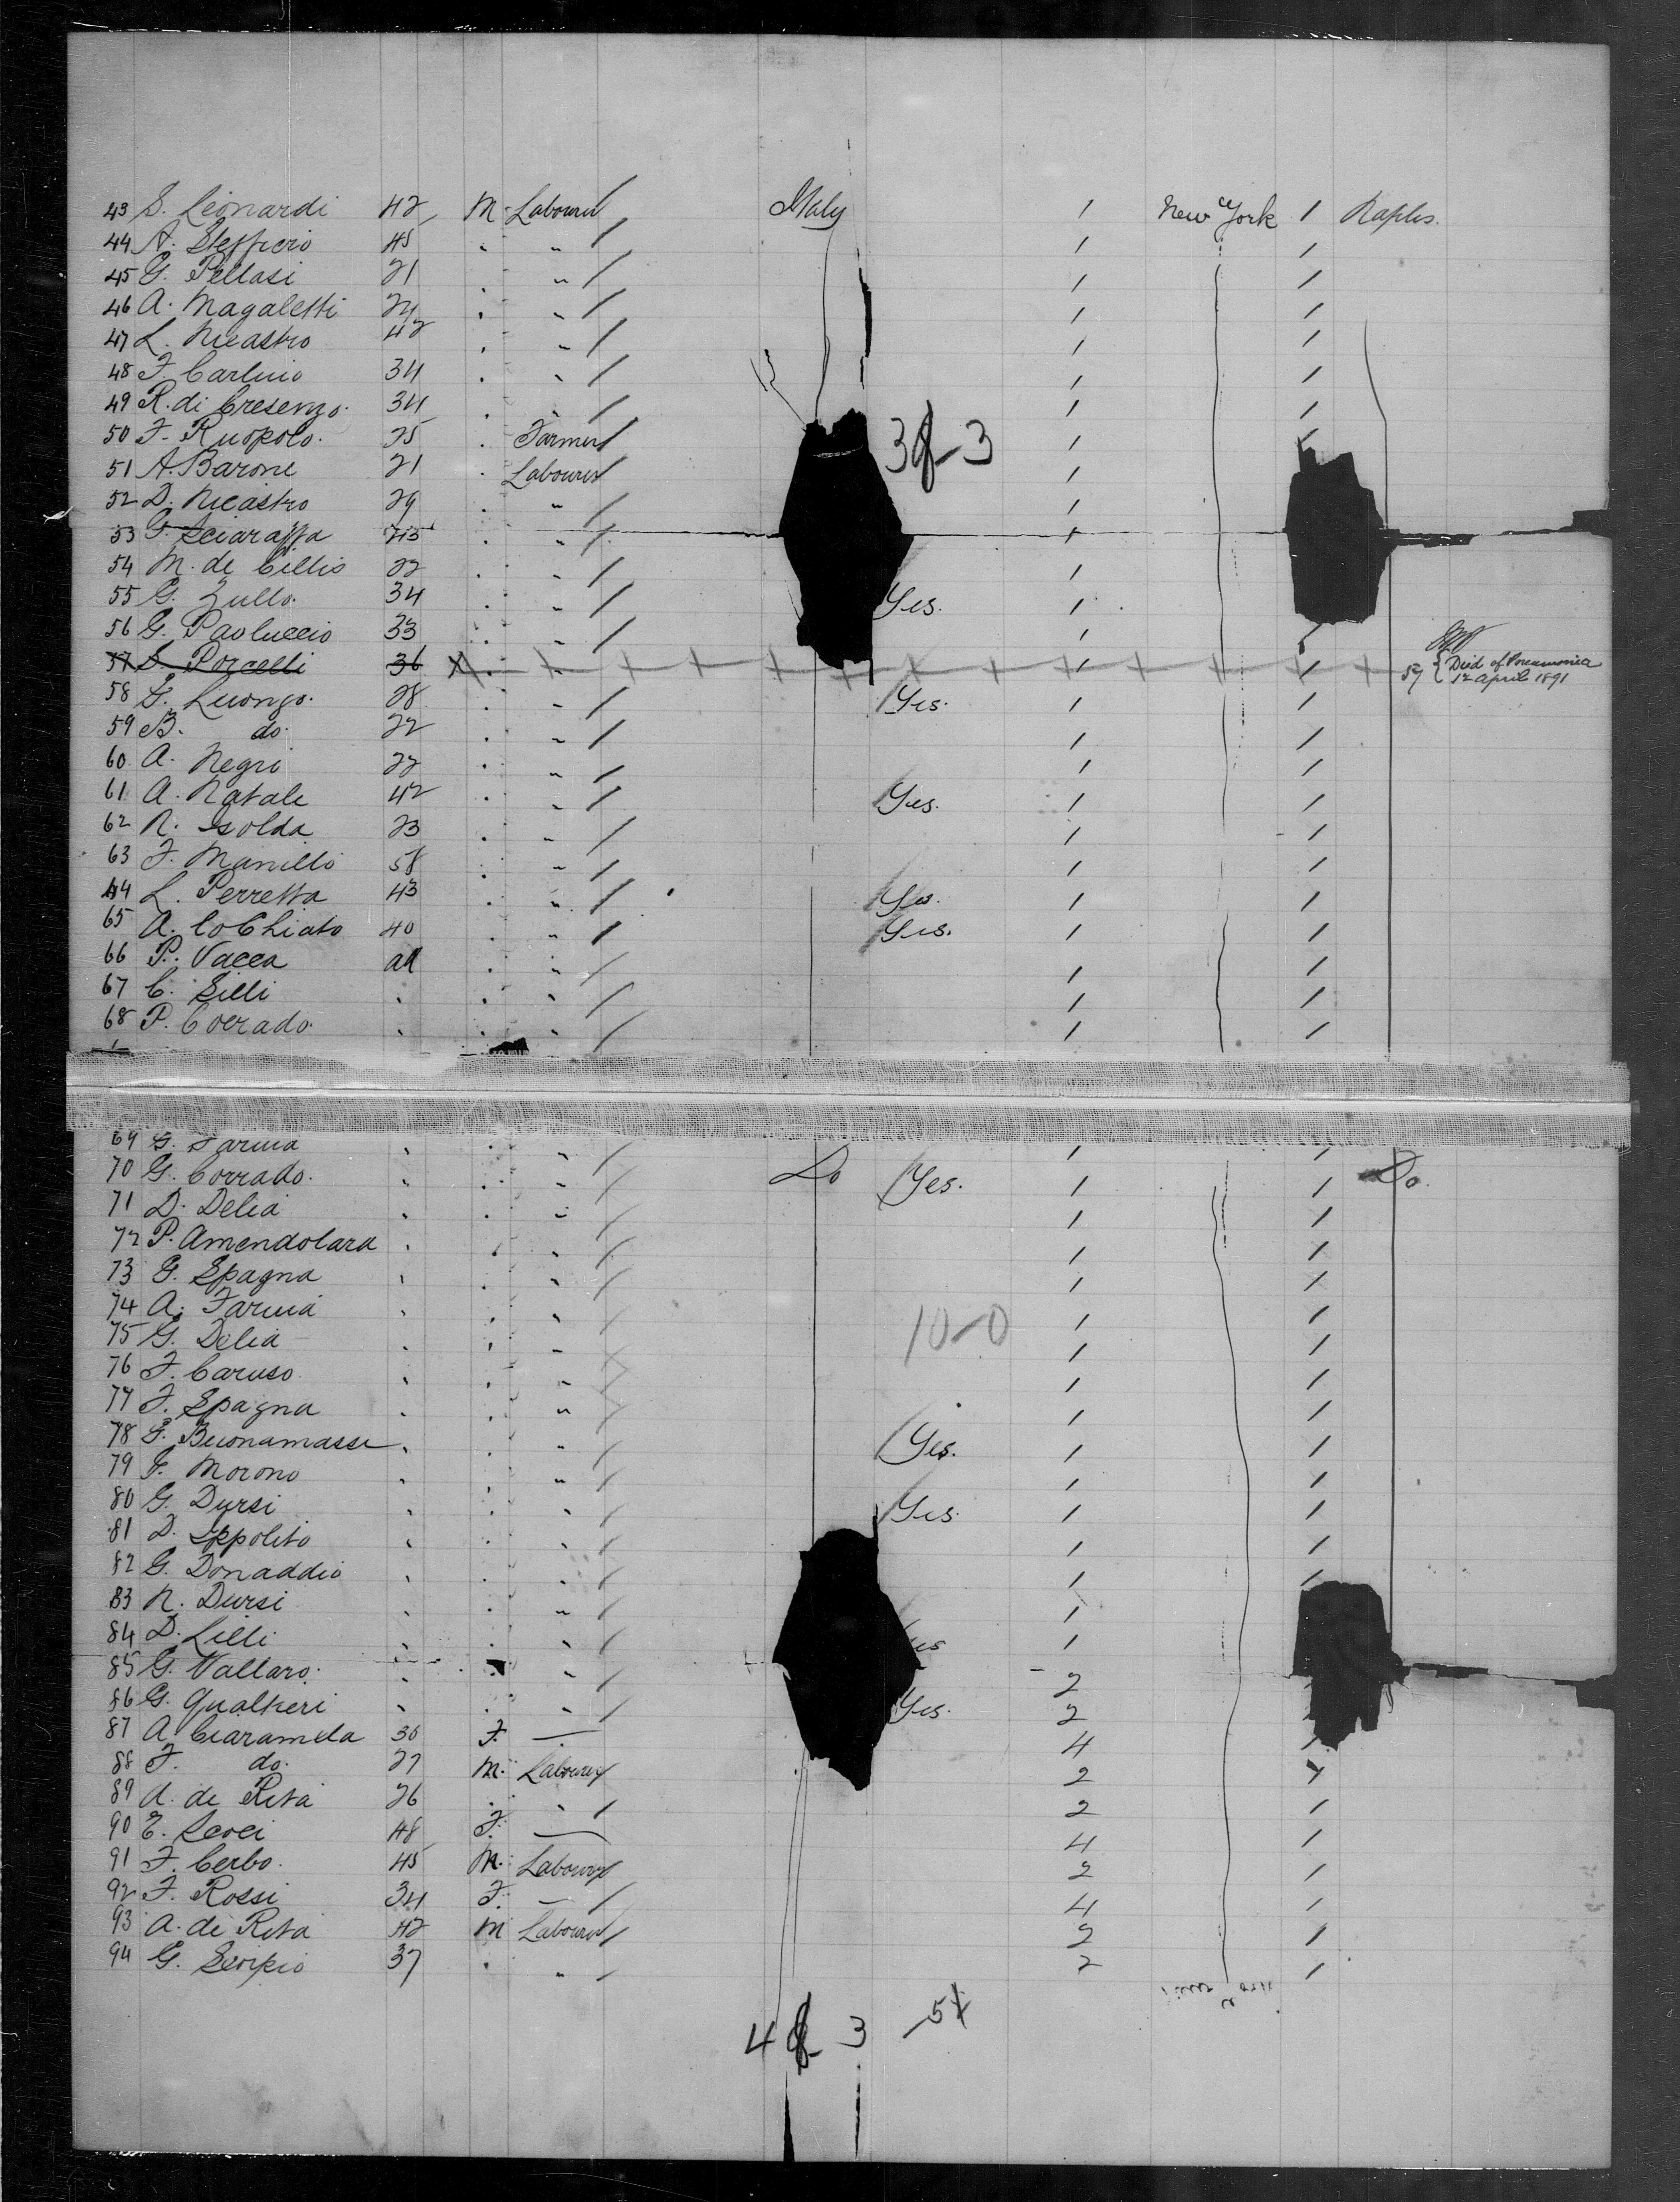 43 S. Leonardi 42 M Labourer / Italy 1 New York 1 Naples.
44 A. 45 . " / 1 : /
45 G. Pellasi 21 . " / 1 /
46 A. Magaletti 24 . " / 1 /
47 L. Nicastro 42 . " / 1 /
48 F. Carluio 34 . " / 1 /
49 R. di Cresenzo. 34 . " / 1 /
50 F. Ruopolo. 25 . Farmer / 3 - 3 1 /
51 A. Barone 21 . Labourer 1
52 D. Nicastro 29 . " / 1
53 G. Sciaraffa . " / 1
54 M. de Cillis 22 . " / 1
55 G. Zullo. 34 . " / Yes. 1
56 G. Paoluccio 33 . " / 1 /
57 S. Porcelli 36 X + . - + + + + + + + 1 + + + / + 57 { Died of Pneumonia
12 April 1891
58 G. Luongo. 28 . " / Yes. 1 /
59 B. do. 22 . " / 1 /
60 A. Negri 22 . " / 1 /
61 A. Natale 42 . " / Yes. 1 /
62 N. Isolda 23 . " / 1 /
63 F. Manillo 58 . " / 1 /
64 L. Perretta 43 . " / Yes. 1 /
65 A. LoChiato 40 . " / Yes. 1 /
66 P. Vacca . " / 1 /
67 C. Silli . . " / 1 /
68 P. Corrado. . . " / 1 /
69 G. Farina . . " / 1 /
70 G. Corrado. . . " / Do Yes. 1 / Do.
71 D. Delia . . " / 1 /
72 P. Amendolara . . " / 1 /
73 G. Spagna . . " / 1 /
74 A. Farina . . " / 1 /
75 G. Delia . . " / 10-0 1 /
76 F. Caruso. . . " / 1 /
77 F. Spagna . . " / 1 /
78 G. Buonamasse . . " / Yes. 1 /
79 F. Morono . . " / 1 /
80 G. Dursi . . " / Yes. 1 /
81 D. Ippolito . . " / 1 /
82 G. Donaddio . . " / 1 /
83 N. Dursi . . " / 1
84 D. Lilli . . " / 1
85 G. Vallaro. . " / 2
86 G. Qualtieri . . " / Yes. 2
87 A. Ciaramela 30 F. — 4 /
88 F. do. 27 M. Labourer 2 /
89 A. de Rita 26 . " / 2 /
90 E. 48 F. — 4 /
91 F. Cerbo. 45 M. Labourer 2 /
92 F. Rossi 34 F. — / 4 /
93 A. de Rita 42 M Labourer / 2 /
94 G. Scripio 37 . " / 2 /
4 3